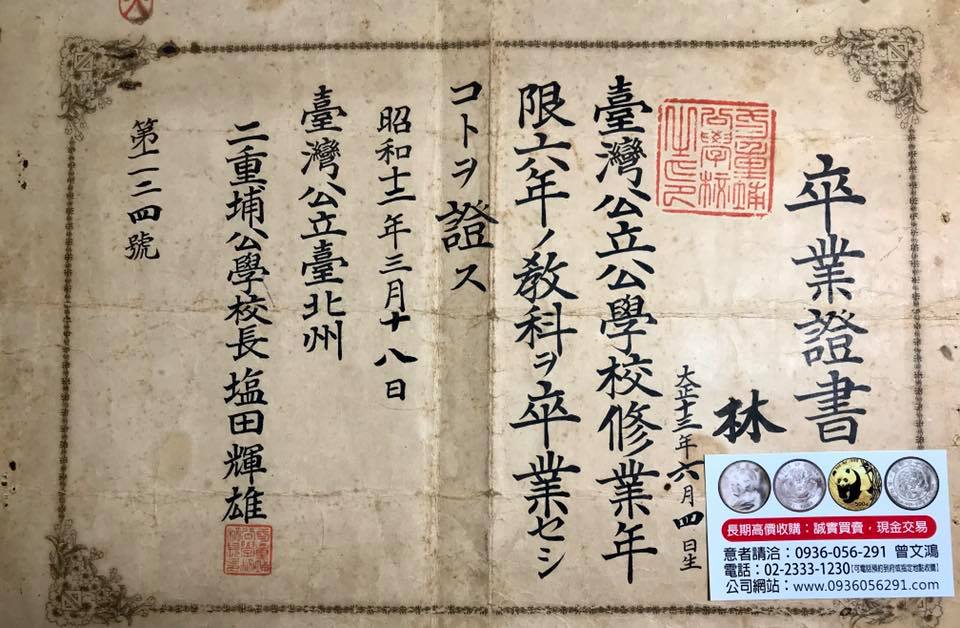 卒業證書
林
大正十三年六月四日生
臺灣公立公學校修業年
限六年ノ教科ヲ卒業セシ
コトヲ證ス
昭和十二年三月十八日
臺灣公立臺北州
二重埔公學校長塩田輝雄
第一二四號
長期高價收購：誠實買賣，現金交易
意者請洽：0936-056-291 曾文鴻
電話：02-2333-1230
公司網站：www.0936056291.com